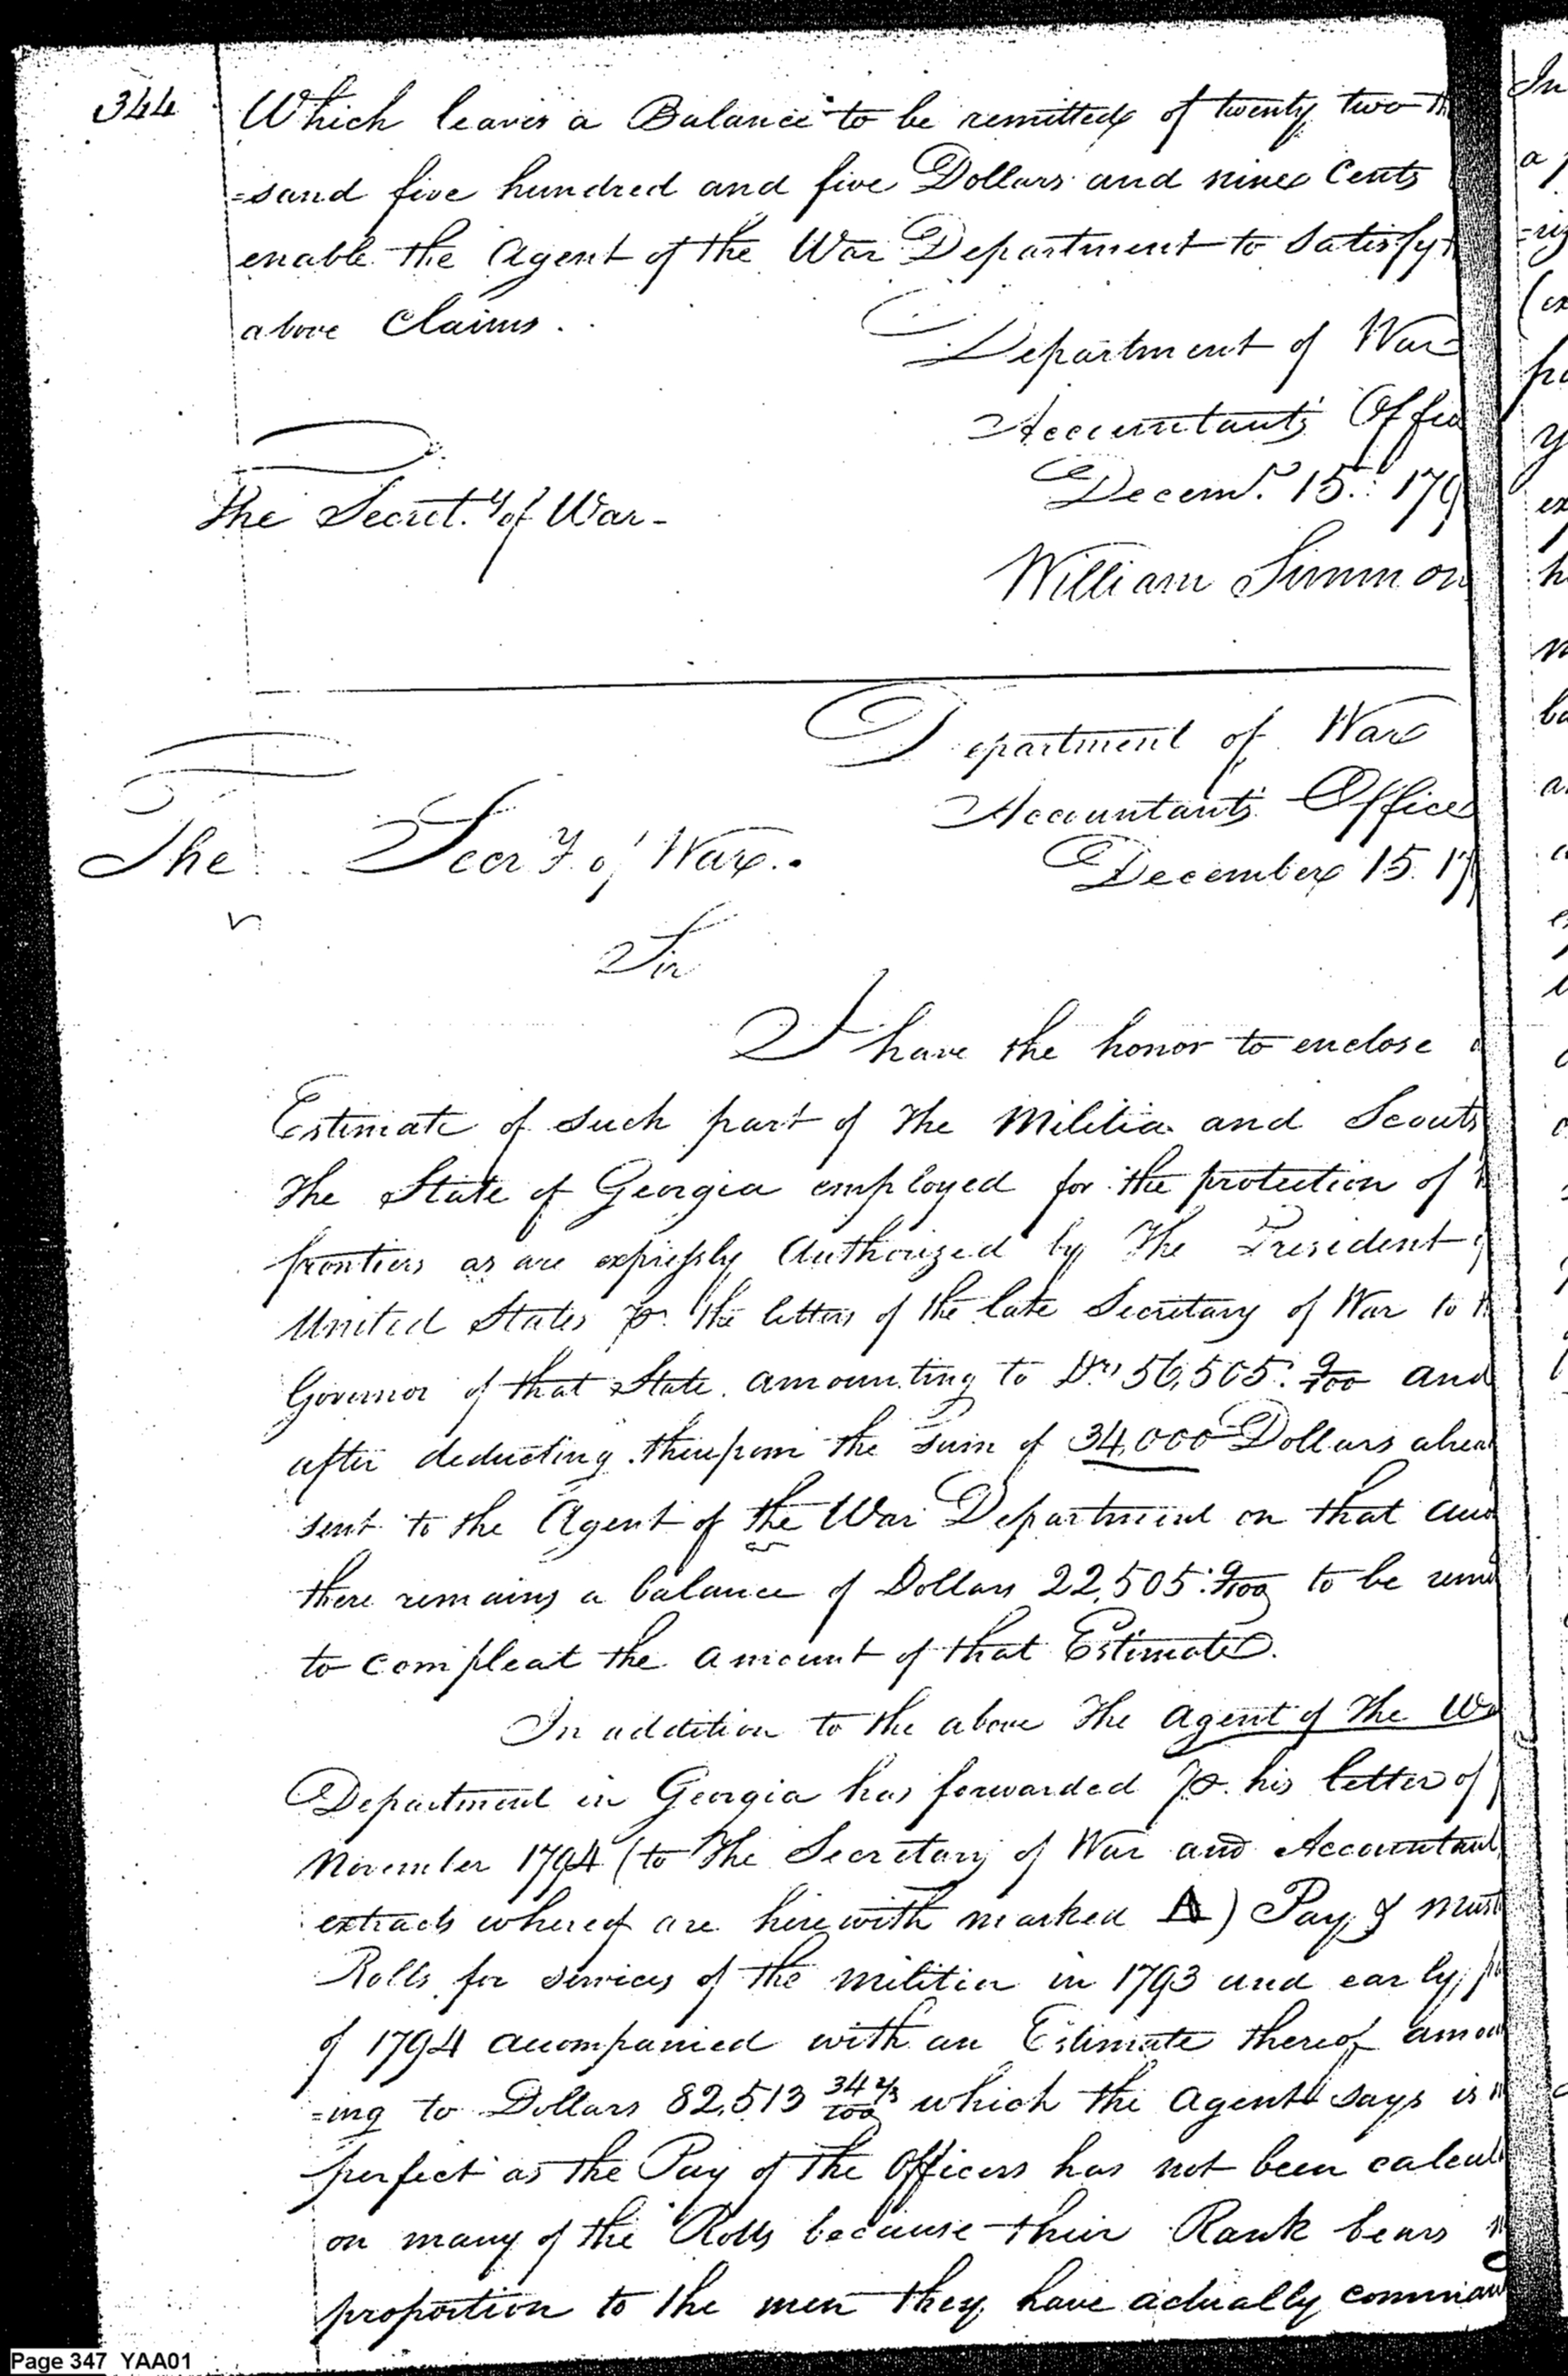 344
Which leaves a Balance to be remitted of twenty two th
=sand five hundred and five Dollars and nine Cents
enable the Agent of the War Department to Satisfy
above Claims.
Department of War
Accountant's Offic
Decem.r 15.: 179
The Secret.y of War-
William Simmon
Department of War
Accountant's Office
The Secr.y of War..
December 15. 17
Sir
I have the honor to enclose
Estimate of such part of the Militia and Scouts
the State of Georgia employed for the protection of
frontiers as are expressly Authorized by the President
United States pr. the letters of the late Secretary of War to th
Governor of that State amounting to Drs 56,505. 9/100 and
after deducting therefrom the Sum of 34,000 Dollars alrea
sent to the Agent of the War Department on that
there remains a balance of Dollars 22,505. 9/100 to be
to compleat the amount of that Estimate.
In addition to the above the Agent of the Wa
Department in Georgia has forwarded pr. his letter of
November 1794 (to the Secretary of War and Accountant
extracts whereof are herewith marked A) Pay & Must
Rolls for services of the militia in 1793 and early
of 1794 accompanied with an Estimate thereof amou
=ing to Dollars 82,513 34 2/3/100 which the Agent says is
perfect as the Pay of the Officers has not been calcul
on many of the Rolls because their Rank bears
proportion to the men they have actually comman
Page 347 YAA01